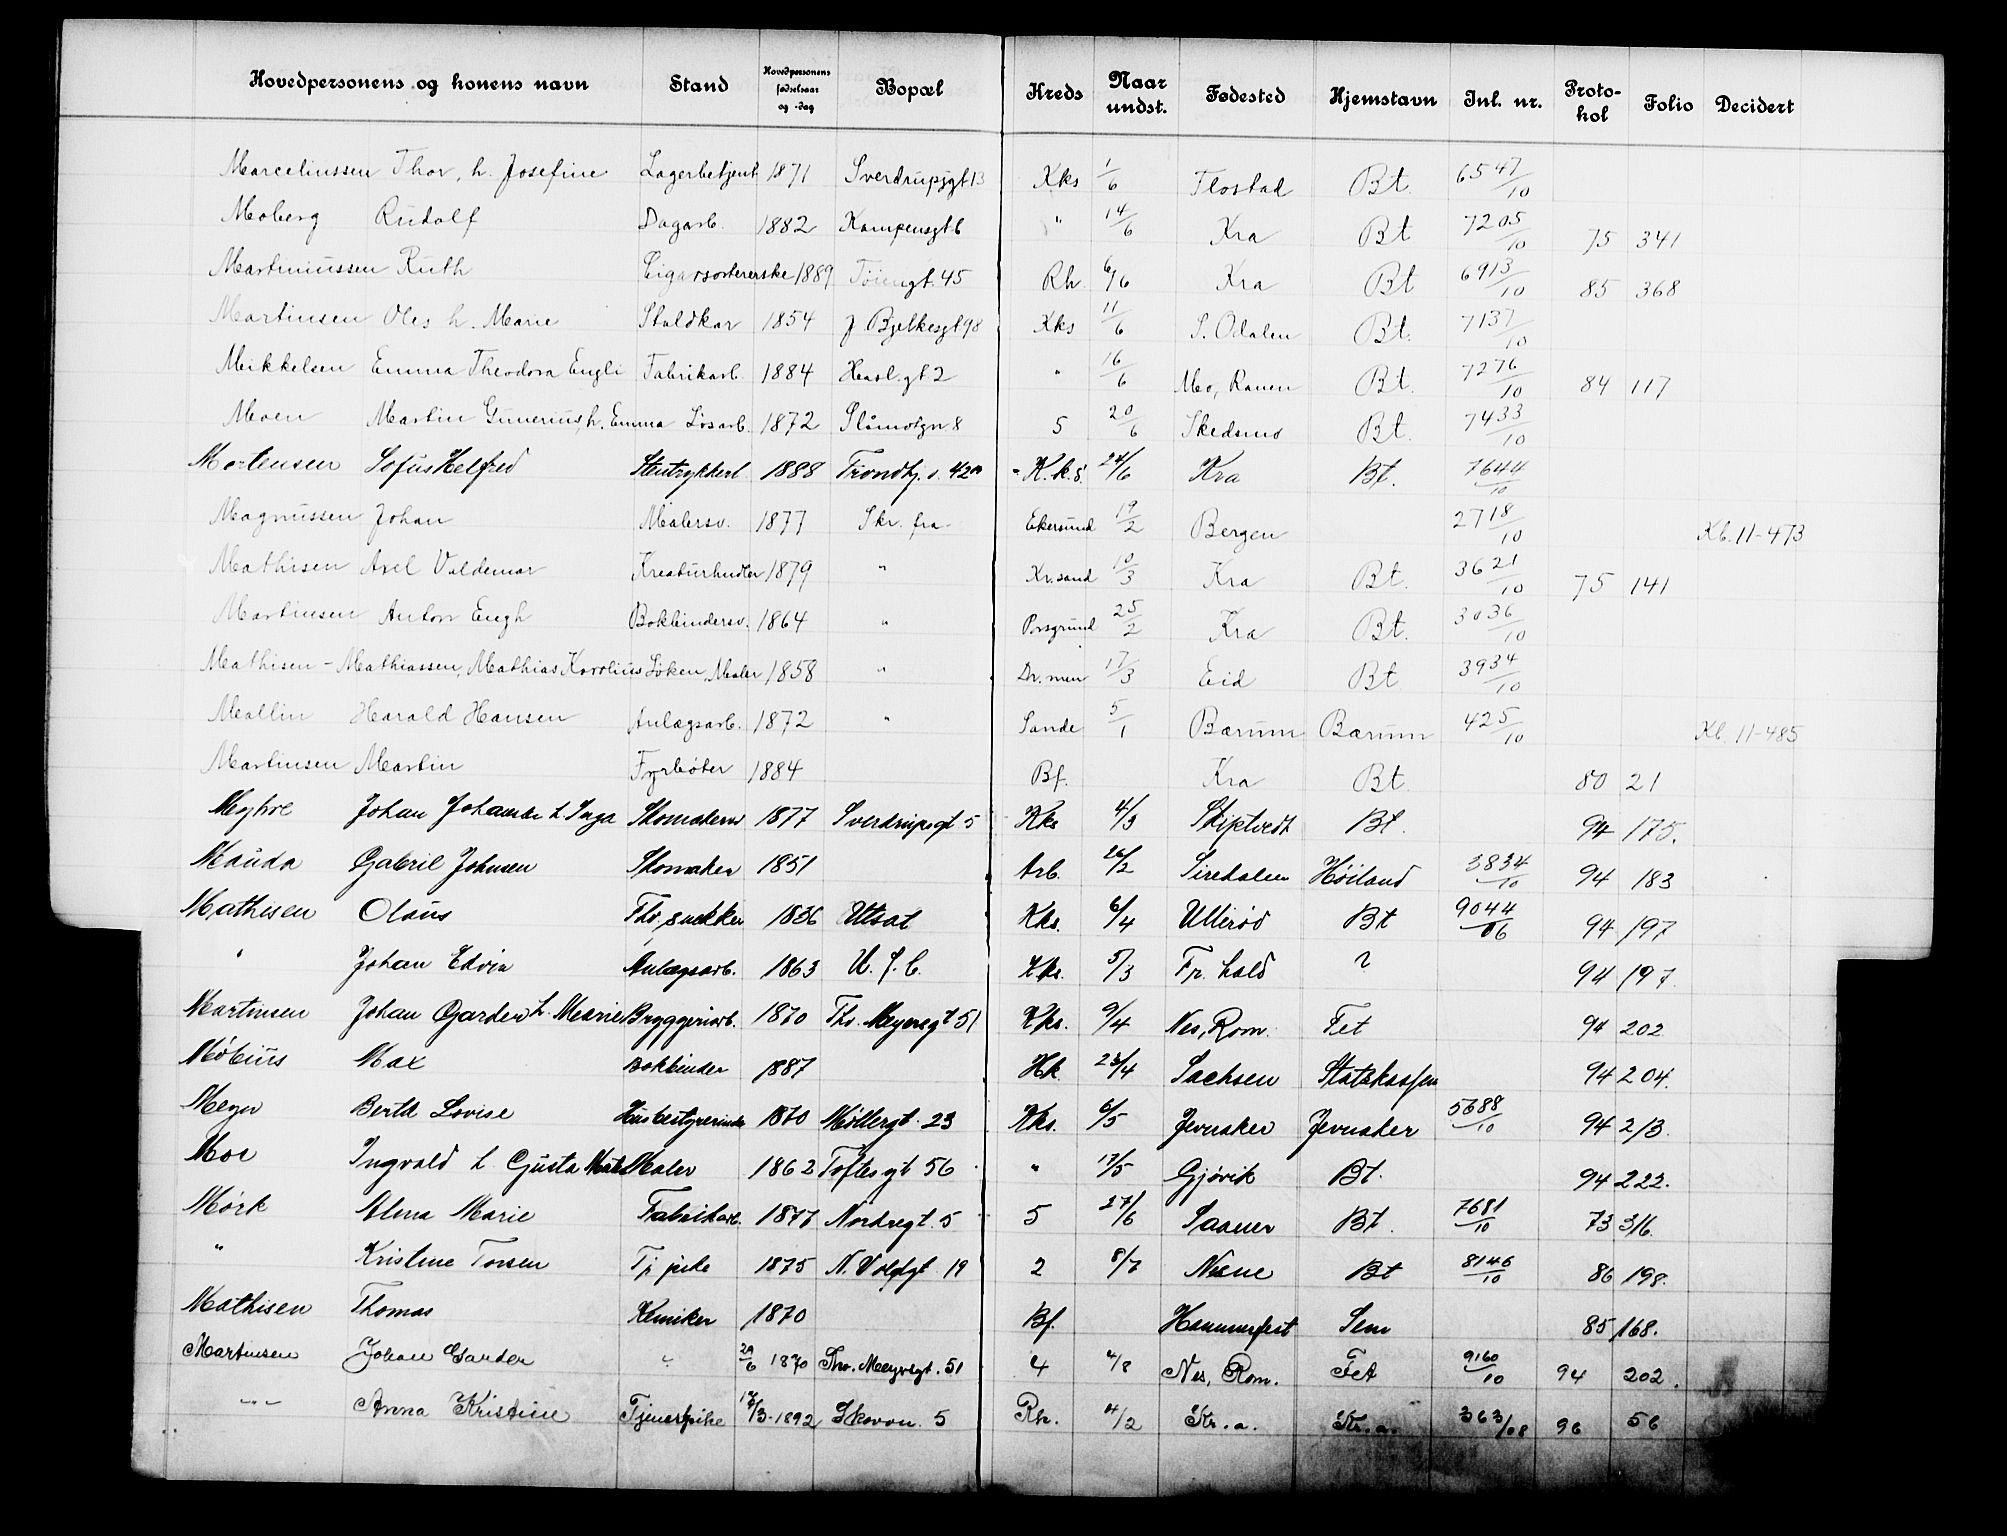 Hovedpersonens og konens navn Stand Hovedpersonens fødselsaar og -dag Bopæl Kreds Naar undst. Fødested Hjemstavn Inl. nr. Proto-kol Folio Decidert
Marceliussen Thor, h. Josefine Lagerbetjent 1871 Sverdrupsgt 13 Kks 1/6 Flostad Bt. 6547/10
Moberg Rudolf Dagarb. 1882 Kampensgt 6 " 14/6 Kra Bt 7205/10 75 341
Martiniussen Ruth Cigarsortererske 1889 Tøiengt. 45 Rh 6/6 Kra Bt 6913/10 85 368
Martinsen Ole, h. Marie Staldkar 1854 J. Bjelkesgt 98 Kks 11/6 S. Odalen Bt. 7137/10
Mikkelsen Emma Theodora Engli Fabrikarb. 1884 Hasl. gt 2 " 16/6 Mo, Ranen Bt. 7276/10 84 117
Moen Martin Gunerius, h. Emma Løsarb. 1872 Slåmotgn 8 5 20/6 Skedsmo Bt. 7433/10
Mortensen Sofus Helfred Stentrykkerl. 1888 Trondhj. v. 42 K.k.s. 24/6 Kra Bt. 7644/10
Magnussen Johan Malersv. 1877 Skr. fra Ekersund 19/2 Bergen 2718/10 Kb. 11-473
Mathisen Axel Valdemar Kreaturhndler 1879 " Kr.sand 10/3 Kra Bt. 3621/10 75 141
Martinsen Anton Engh Bokbindersv. 1864 " Porsgrund 25/2 Kra Bt. 3036/10
Mathisen - Mathiassen, Mathias Karolius Løken, Maler 1858 " Dr.men 17/3 Eid Bt 3934/10
Mallin Harald Hansen Anlægsarb. 1872 " Sande 5/1 Bærum Bærum 425/10 Kb. 11-485
Martinsen Martin Fyrbøter 1884 Bf. Kra Bt 80 21
Myhre Johan Johansen h. Inga Skomakersv 1877 Sverdrupsgt 5 Kks 4/3 Skiptvedt Bt. 94 175.
Mauda Gabriel Johnsen Skomaker 1851 Arb. 26/2 Siredalen Høiland 3834/10 94 183
Mathisen Olaus Fhv. snekker 1836 Utsat Kks. 6/4 Ullerød Bt 9044/06 94 197
" Johan Edvin Anlægsarb. 1863 U. f. b. Kks. 5/3 Fr. hald ? 94 197
Martinsen Johan Garder h. Marie Bryggeriarb. 1870 Th. Meyersgt 51 Kks. 9/4 Nes, Rom. Fet 94 202
Møbius Max Bokbinder 1887 Hk. 23/4 Sachsen Statskassen 94 204.
Meyer Berta Lovise Husbestyrerinde 1870 Møllergt. 23 Kks. 6/5 Jevnaker Jevnaker 5688/10 94 213.
Moe Ingvald h. Gusta Maler 1862 Toftesgt 56 " 17/5 Gjøvik Bt. 94 222.
Mørk Alma Marie Fabrikarb. 1877 Nordregt. 5 5 27/6 Saaner Bt. 7681/10 73 316.
" Kristine Torsen Tj pike 1875 N. Voldgt 19 2 8/7 Næne Bt 8146/10 86 198.
Mathisen Thomas Kemiker 1870 Bf. Hammerfest Sem 85 168.
Martinsen Johan Garder " 29/6 1870 Thv. Meyersgt. 51 4 4/8 Nes, Rom. Fet 9160/10 94 202.
" Anna Kristine Tjenestpike 17/3-1892 Skovvn. 5 Rh. 4/2 Kr.a. Kr.a. 363/08 96 56